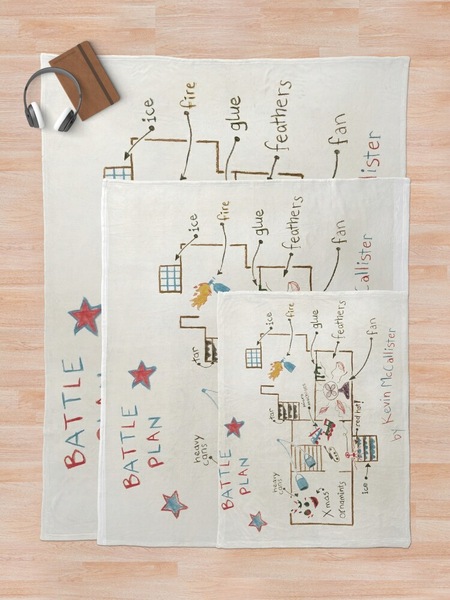 ice
fire
glue
feathers
fan
allister
BATTLE
ice
fire
glue
feathers
fan
callister
tar
heavy
cans
BATTLE
PLAN
ice
fire
glue
feathers
fan
tar
red hot!
heavy
cans
Xmas
ornamints
ice
BATTLE
PLAN
by Kevin McCallister